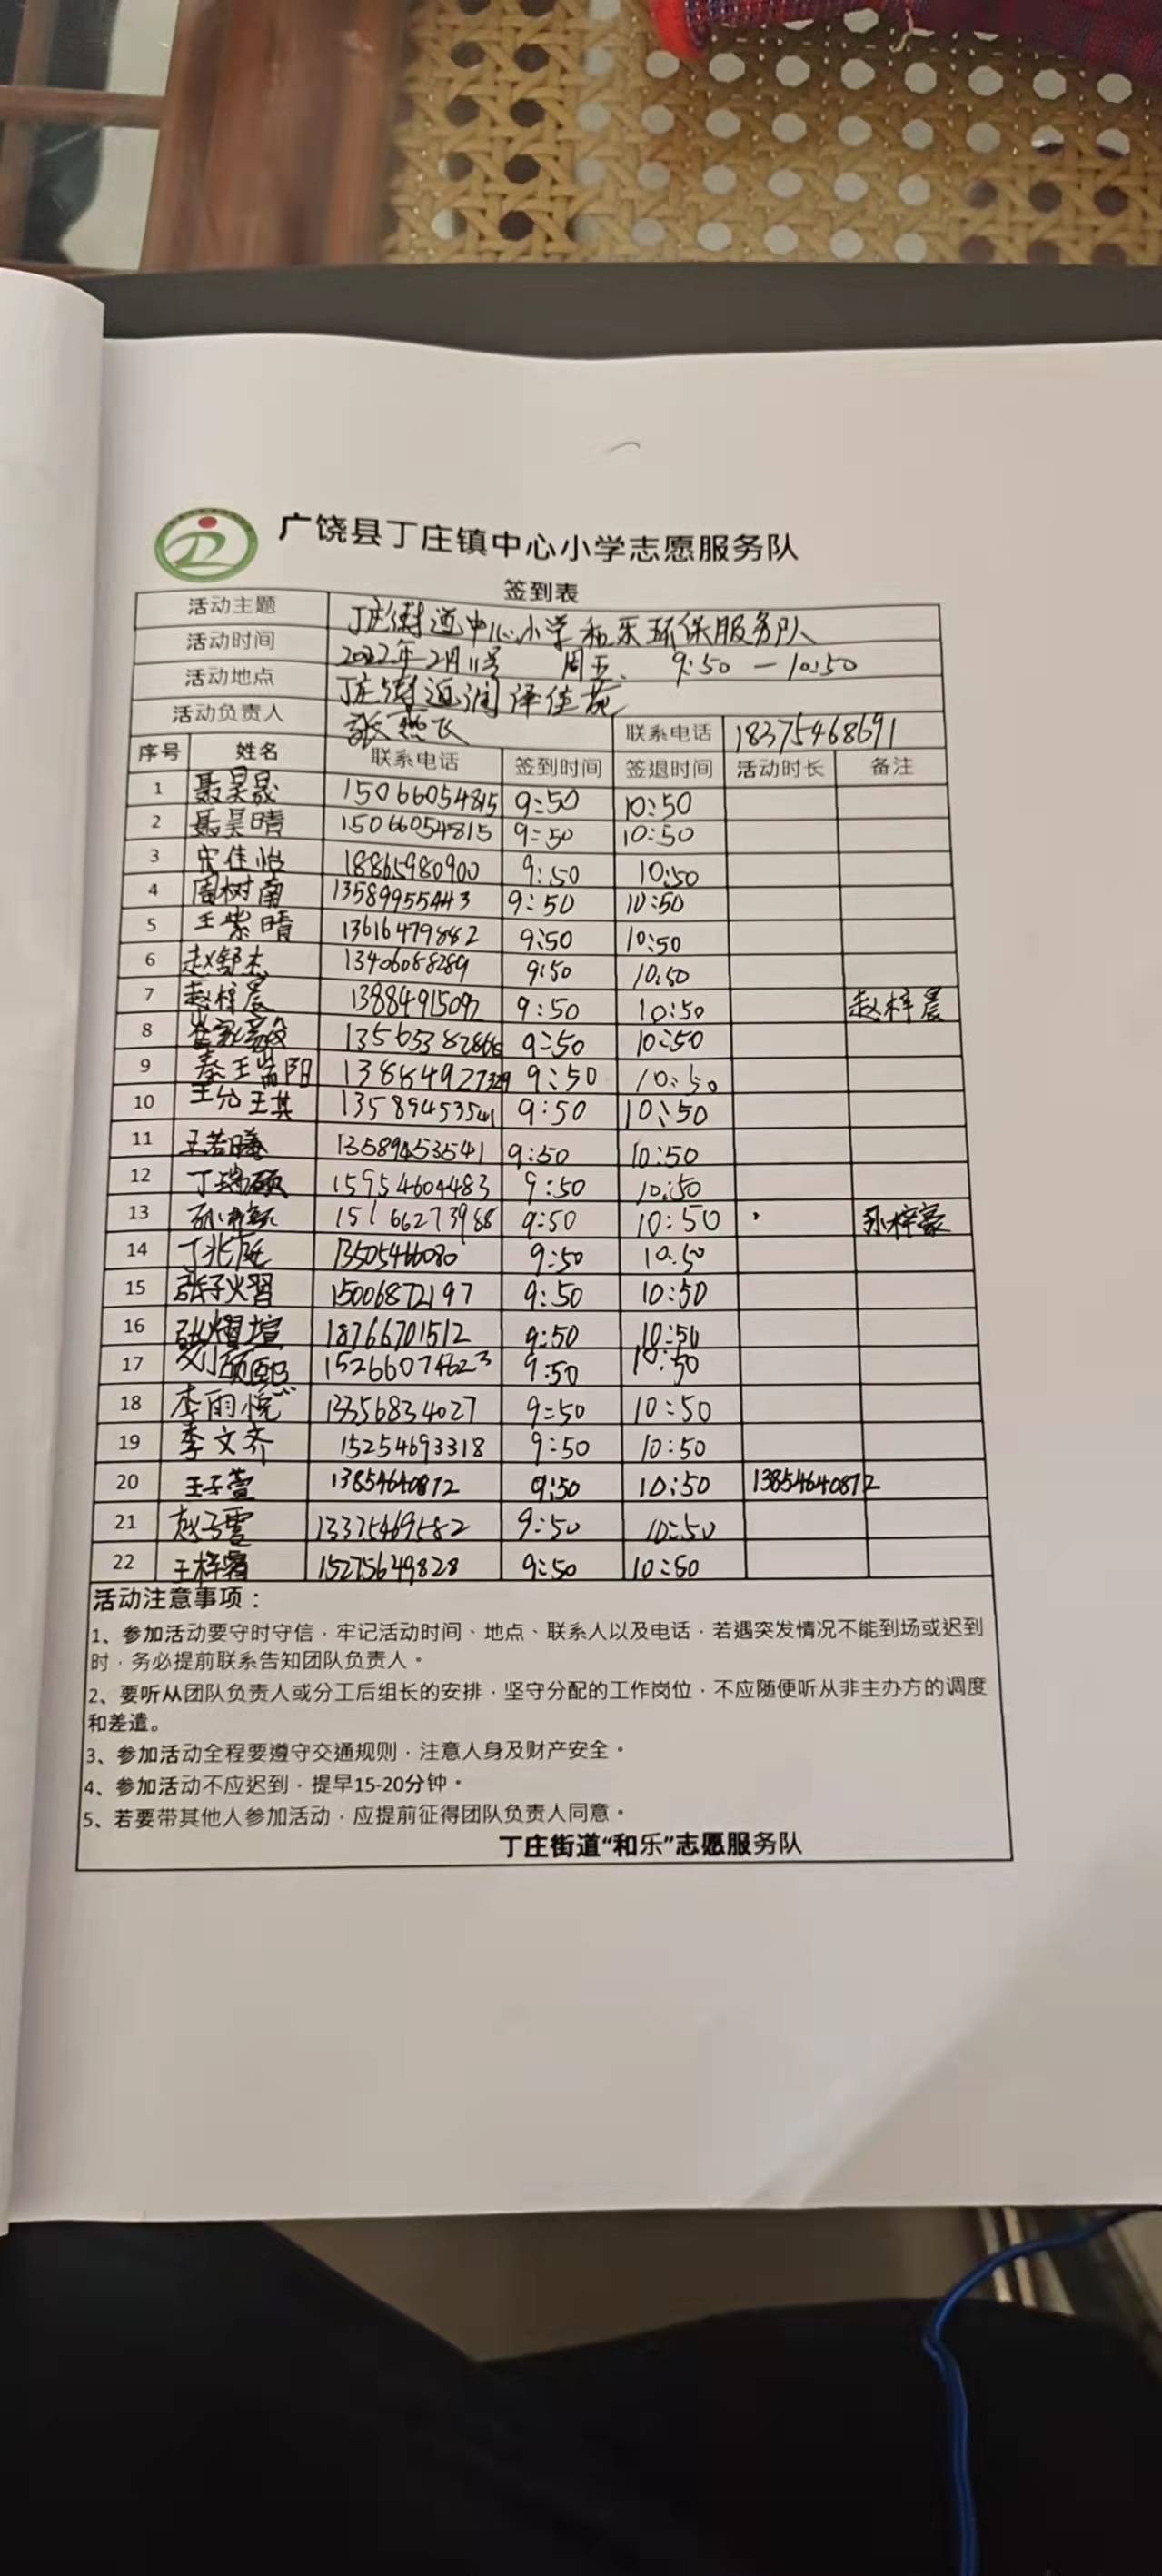 广饶县丁庄镇中心小学志愿服务队
签到表
活动主题 丁庄街道中心小学和乐环保服务队
活动时间 2022年2月11号 周五 9:50 — 10:50
活动地点 丁庄街道润泽佳苑
活动负责人 张燕飞 联系电话 18375468691
序号 姓名 联系电话 签到时间 签退时间 活动时长 备注
1 聂昊晟 15066054815 9:50 10:50
2 聂昊晴 15066054815 9:50 10:50
3 宋佳怡 18865980900 9:50 10:50
4 周树南 13589955443 9:50 10:50
5 王紫晴 13616479882 9:50 10:50
6 赵舒杰 13406088289 9:50 10:50
7 赵梓晨 13884915092 9:50 10:50 赵梓晨
8 9:50 10:50
9 秦王嵩阳 9:50 10:50
10 13589453541 9:50 10:50
11 王若曦 13589453541 9:50 10:50
12 丁瑞硕 15954604483 9:50 10:50
13 15166273988 9:50 10:50 孙梓豪
14 丁兆庭 13505466080 9:50 10:50
15 张子熠 15006872197 9:50 10:50
16 张熠煊 18766701512 9:50 10:50
17 刘硕熙 15266074623 9:50 10:50
18 李雨悦 13356834027 9:50 10:50
19 李文齐 15254693318 9:50 10:50
20 王子萱 13854640872 9:50 10:50 13854640872
21 赵子雲 13375469582 9:50 10:50
22 王梓睿 15275649828 9:50 10:50
活动注意事项：
1、参加活动要守时守信，牢记活动时间、地点、联系人以及电话，若遇突发情况不能到场或迟到
时，务必提前联系告知团队负责人。
2、要听从团队负责人或分工后组长的安排，坚守分配的工作岗位，不应随便听从非主办方的调度
和差遣。
3、参加活动全程要遵守交通规则，注意人身及财产安全。
4、参加活动不应迟到，提早15-20分钟。
5、若要带其他人参加活动，应提前征得团队负责人同意。
丁庄街道“和乐”志愿服务队